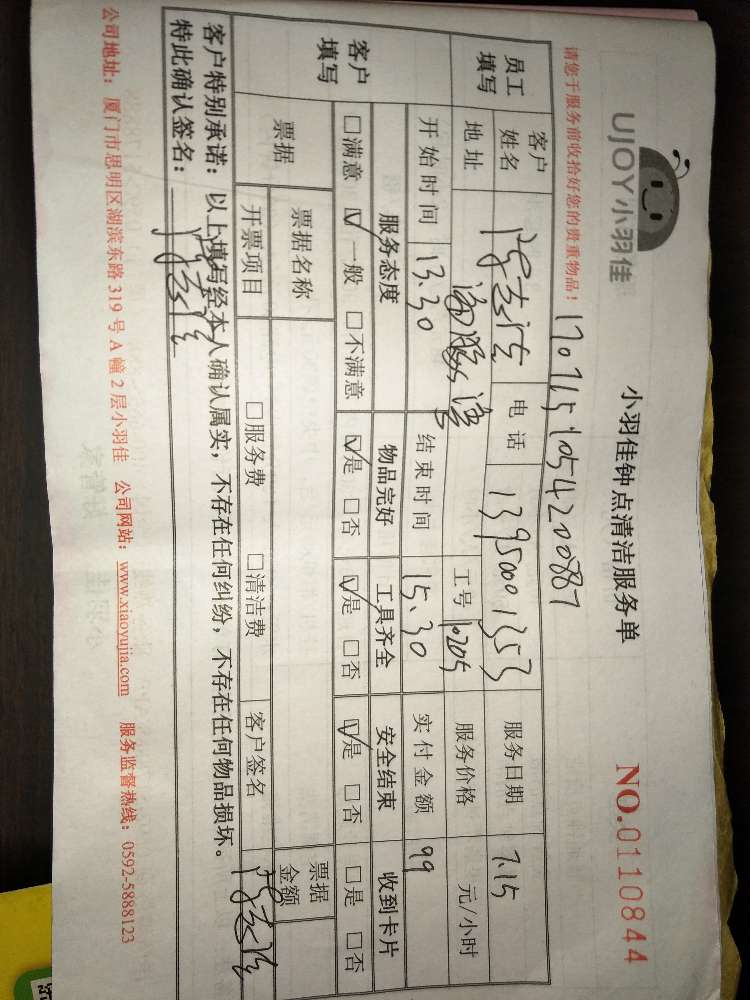 UJOY小羽佳
小羽佳钟点清洁服务单
NO.0110844
请您于服务前收拾好您的贵重物品!
1707151054200887
员工填写
客户姓名
电话 13950001353
服务日期 7.15
地址
工号 10205
服务价格 元/小时
开始时间 13.30
结束时间 15.30
实付金额 99
客户填写
服务态度 物品完好 工具齐全 安全结束 收到卡片
□满意 ☑一般 □不满意 ☑是 □否 ☑是 □否 ☑是 □否 □是 □否
票据
票据名称
票据金额
开票项目 □服务费 □清洁费 客户签名
客户特别承诺: 以上填写经本人确认属实,不存在任何纠纷,不存在任何物品损坏。
特此确认签名:
公司地址: 厦门市思明区湖滨东路 319 号 A 幢 2 层小羽佳 公司网站: www.xiaoyujia.com 服务监督热线: 0592-5888123